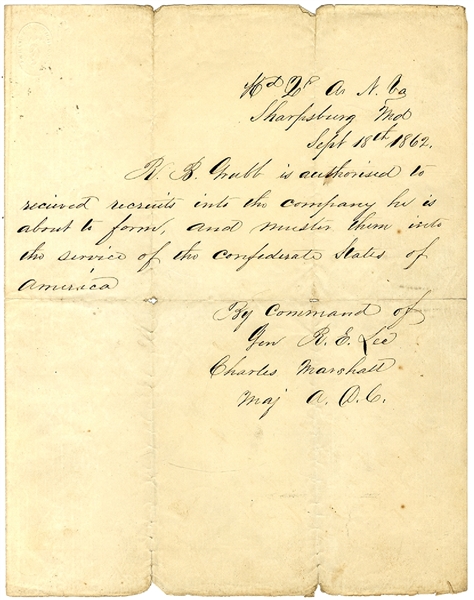 Hd Qr Ar N. Va
Sharpsburg Md
Sept 18th 1862.
R. B. Grubb is authorised to
recieved recruits into the company he is
about to form, and muster them into
the service of the confederate States of
America
By Command of
Gen R. E. Lee
Charles Marshall
Maj A. D. C.